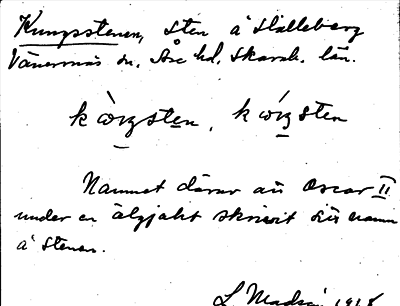 Kungsstenen, sten å Halleberg
Vänersnäs sn. Åse hd. Skarab. län.
kùŋsten, kúŋsten
Namnet därav att Oscar II
under en älgjakt skrivit sitt namn
å stenen.
L